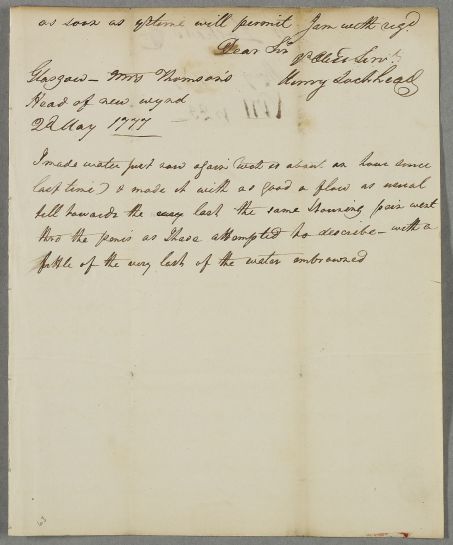 as soon as yr time will permit I am with regd.
Dear Sir
yr Obedt Servt.
Glasgow - Mrs Thomsons
Henry Lochhead
Head of new wynd
22 May 1777
I made water just now again (wch is about an hour since
last time) & made it with as good a flow as usual
till towards the last the same stouning pain went
thro the penis as I have attempted to describe - with a
little of the very last of the water embrowned
63